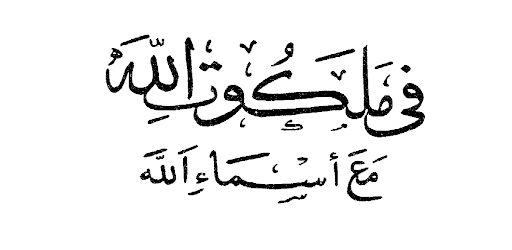 في مَلَكُوتِ اللَّهِ
مَعَ أسْمَاءِ اللَّه